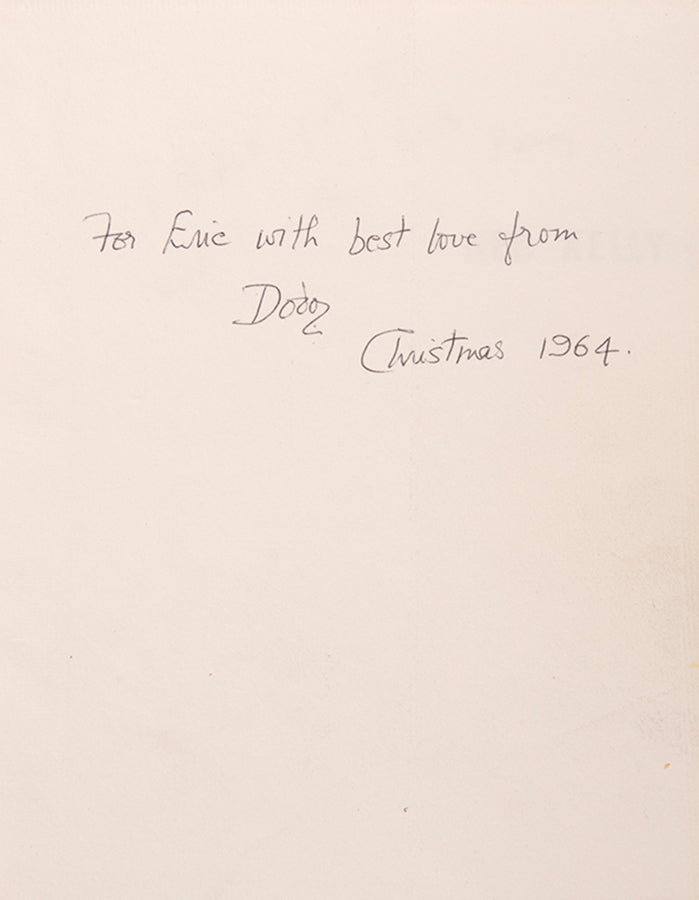 For Eric with best love from
Christmas 1964.